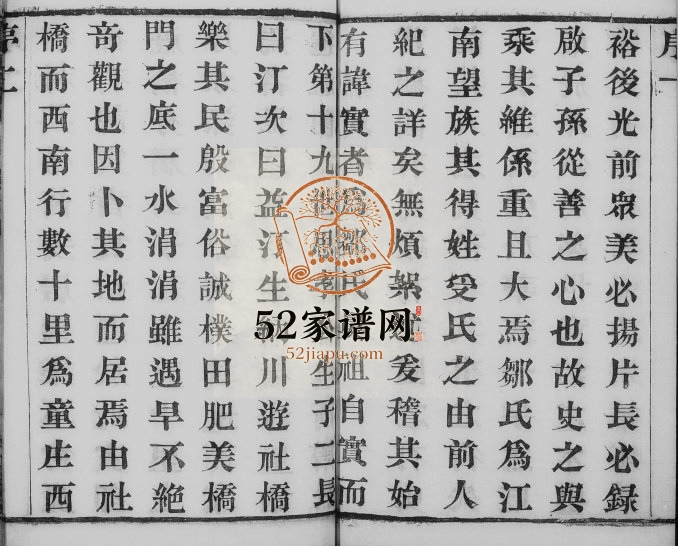 序一
裕後光前眾美必揚片長必録
啟子孫從善之心也故史之與
乘其維係重且大焉鄒氏爲江
南望族其得姓受氏之由前人
紀之詳矣無煩絮爰稽其始
有諱實者爲氏祖自實而
下第十九世思孝生子二長
曰汀次曰益汀生川遊社橋
樂其民殷富俗誠樸田肥美橋
門之底一水涓涓雖遇旱不絶
奇觀也因卜其地而居焉由社
橋而西南行數十里爲童庄西
序二
52家谱网
52jiapu.com